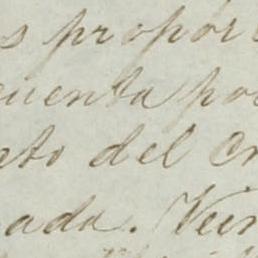 s propor
cuenta por
nto del cr
ada. Vein